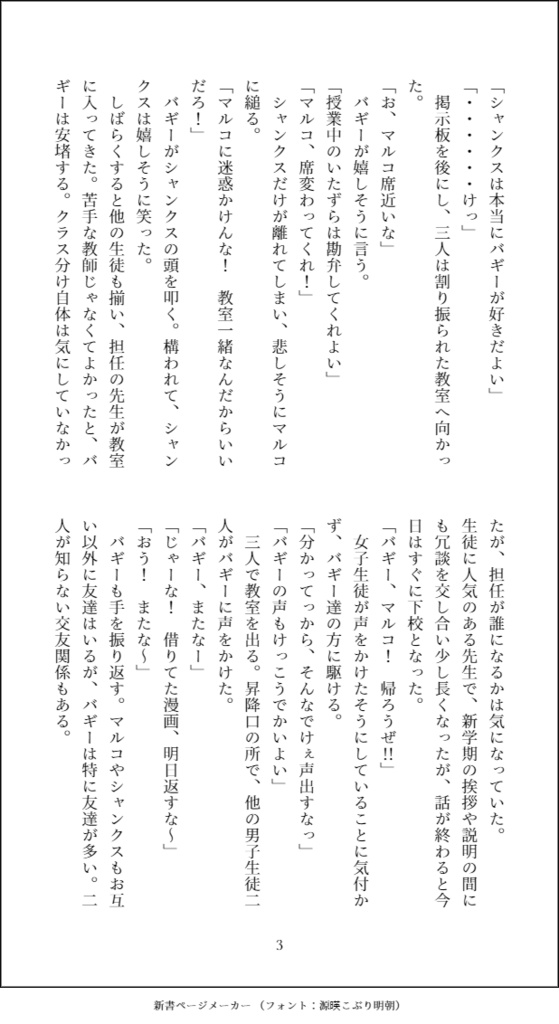 「シャンクスは本当にバギーが好きだよい」
「・・・・・・けっ」
　掲示板を後にし、三人は割り振られた教室へ向かっ
た。
「お、マルコ席近いな」
　バギーが嬉しそうに言う。
「授業中のいたずらは勘弁してくれよい」
「マルコ、席変わってくれ！」
　シャンクスだけが離れてしまい、悲しそうにマルコ
に縋る。
「マルコに迷惑かけんな！　教室一緒なんだからいい
だろ！」
　バギーがシャンクスの頭を叩く。構われて、シャン
クスは嬉しそうに笑った。
　しばらくすると他の生徒も揃い、担任の先生が教室
に入ってきた。苦手な教師じゃなくてよかったと、バ
ギーは安堵する。クラス分け自体は気にしていなかっ
たが、担任が誰になるかは気になっていた。
生徒に人気のある先生で、新学期の挨拶や説明の間に
も冗談を交し合い少し長くなったが、話が終わると今
日はすぐに下校となった。
「バギー、マルコ！　帰ろうぜ!!」
　女子生徒が声をかけたそうにしていることに気付か
ず、バギー達の方に駆ける。
「分かってっから、そんなでけぇ声出すなっ」
「バギーの声もけっこうでかいよい」
　三人で教室を出る。昇降口の所で、他の男子生徒二
人がバギーに声をかけた。
「バギー、またなー」
「じゃーな！　借りてた漫画、明日返すな～」
「おう！　またな～」
　バギーも手を振り返す。マルコやシャンクスもお互
い以外に友達はいるが、バギーは特に友達が多い。二
人が知らない交友関係もある。
3
新書ページメーカー（フォント：源暎こぶり明朝）